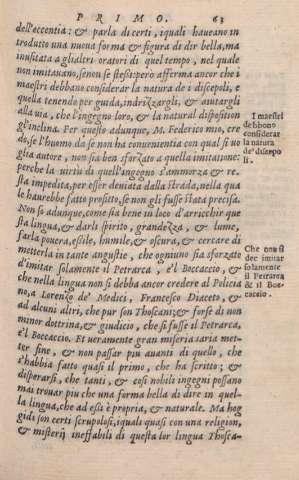 PRIMO. 63
dell'eccentia: & parla di certi, iquali haueano in
trodutto una nuoua forma & figura di dir bella, ma
inusitata a gliadtri oratori di quel tempo, nel quale
non imitauano, senon se stessi: però afferma ancor che i
maestri debbano considerar la natura de i discepoli, e
quella tenendo per guida, indrizzargli, & aiutargli
alla uia, che l'ingegno loro, & la natural disposition
gl'inclina. Per questo adunque, M. Federico mio, cre
do, se l'huomo da se non ha conuenientia con qual si uo
glia autore, non sia ben sforzato a quella imitatione:
perche la uirtù di quell'ingegno s'ammorza & re-
sta impedita, per esser deuiata dalla strada, nella qua
le haurebbe fatto profitto, se non gli fusse stata precisa.
Non so adunque, come sia bene in loco d'arricchir que
sta lingua, & darli spirito, grandezza, & lume,
farla pouera, esile, humile, & oscura, & cercare di
metterla in tante angustie, che ogniuno sia sforzato
d'imitar solamente il Petrarca, e'l Boccaccio, &
che nella lingua non si debba ancor credere al Policia
no, a Lorenzo de' Medici, Francesco Diaceto, &
ad alcuni altri, che pur son Thoscani; & forse di non
minor dottrina, & giudicio, che si fusse il Petrarca,
e'l Boccaccio. Et ueramente gran miseria saria met-
ter fine, & non passar piu auanti di quello, che
s'habbia fatto quasi il primo, che ha scritto; &
disperarsi, che tanti, & cosi nobili ingegni possano
mai trouar piu che una forma bella di dire in quel-
la lingua, che ad essi è propria, & naturale. Ma hog
gidi son certi scrupolosi, iquali quasi con una religion,
& misterij ineffabili di questa lor lingua Thosca-
I maestri
debbono
considerar
la natura
de' discepo
li.
Che non si
dee imitar
solamente
il Petrarca
& il Boc-
caccio.